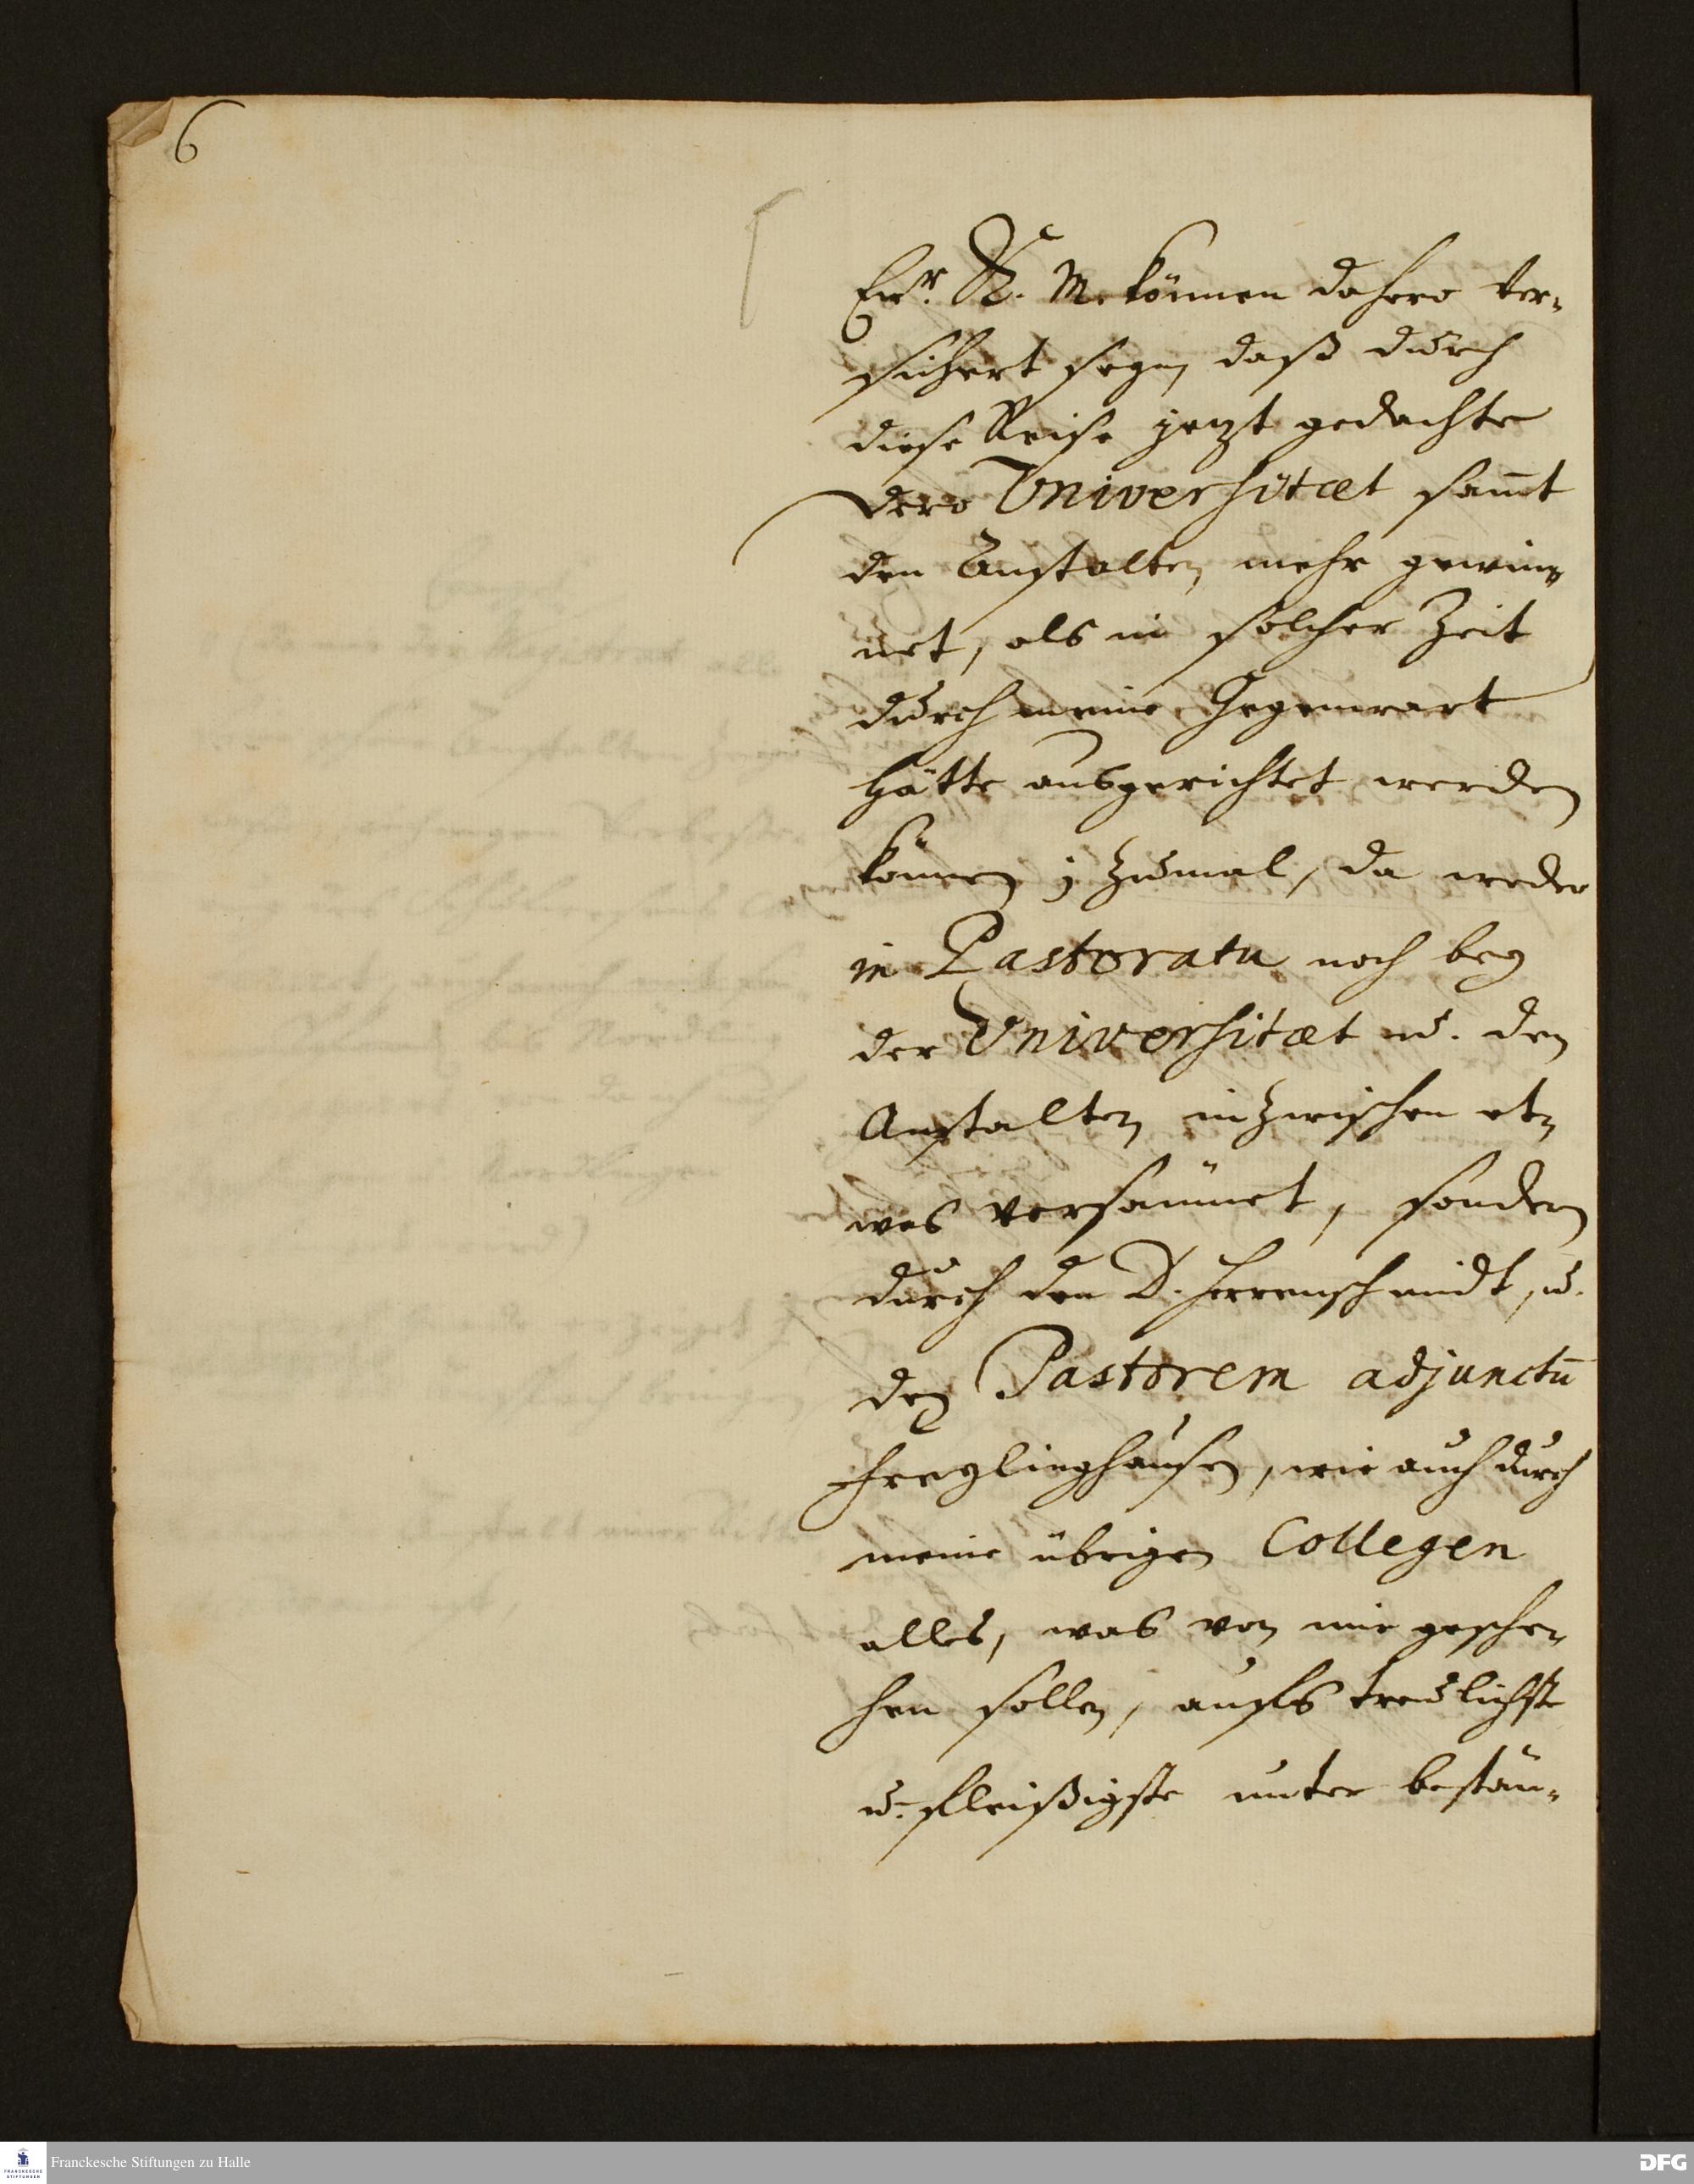 6
Ewr. K. M. können dahero ver-
sichert seyn, daß durch
diese Reise jetzt gedachte
dero Universitæt sam̄t
den Anstalten mehr gewin-
net, als in solcher Zeit
durch meine Gegenwart
hätte ausgerichtet werden
können; zumal, da weder
in Pastoratu noch bey
der Universitæt u. den
Anstalten inzwischen et-
was versäumet, sondern
durch den D. Herrnschmidt, u.
den Pastorem adjunctū
Freylinghausen, wie auch durch
meine übrigen Collegen
alles, was von mir gesche-
hen sollen, aufs treulichste
u. fleißigste unter bestän-
Franckesche Stiftungen zu Halle
FRANCKESCHE
STIFTUNGEN
DFG